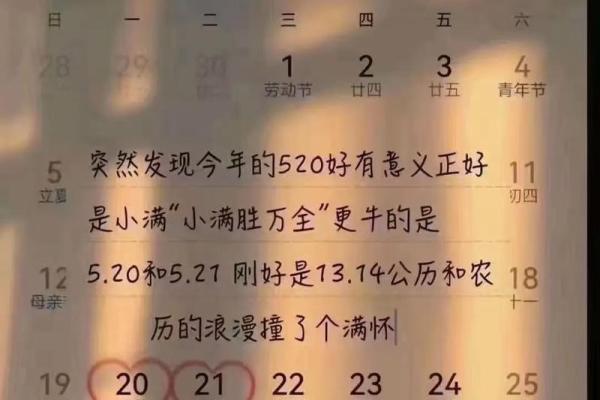 日 一 二 三 四 五 六
28 29 30 1 2 3 4
劳动节 廿四 廿五 青年节
突然发现今年的520好有意义正好
5 11
立夏 初四
是小满“小满胜万全”更牛的是
5.20和5.21 刚好是13.14公历和农
12 18
母亲 十一
历的浪漫撞了个满怀
19 20 21 22 23 24 25